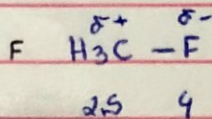 δ+ δ-
F H3C – F
2.5 4